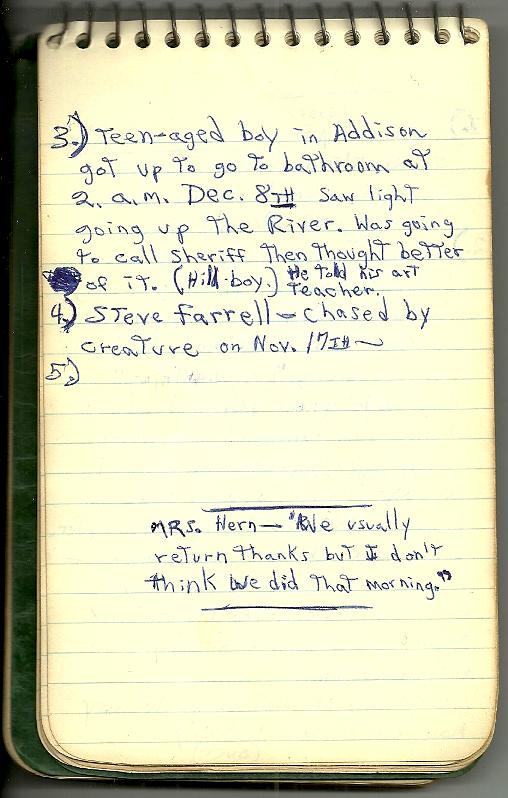 3.) Teen-aged boy in Addison
got up to go to bathroom at
2. a.m. Dec. 8TH Saw light
going up the River. Was going
to call sheriff then thought better
of it. (Hill boy.) He told his art
teacher.
4.) Steve Farrell - chased by
creature on Nov. 17TH ~
5.)
MRS. Hern - "We usually
return thanks but I don't
think we did that morning."